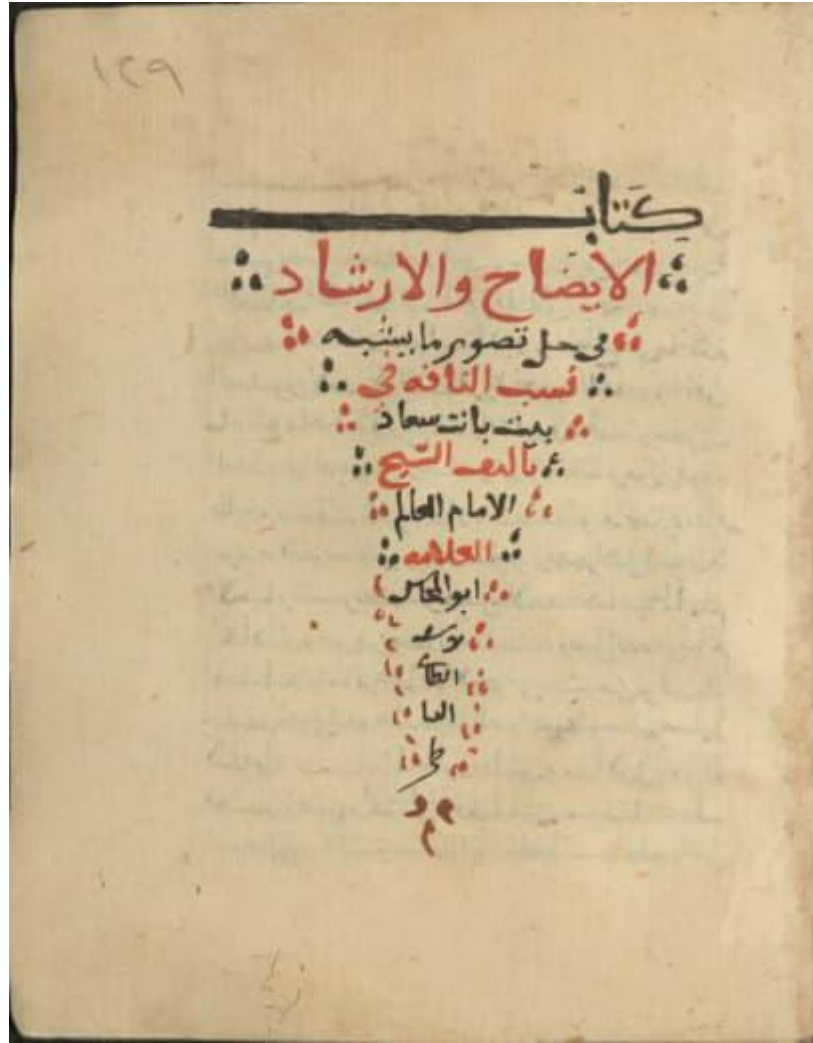 ١٢٩
كتاب
الايضاح والارشاد
في حل تصوير ما يشبه
نسب الناقه في
بيت بانت سعاد
تاليف الشيخ
الامام العالم
العلامه
ابو المحاسن